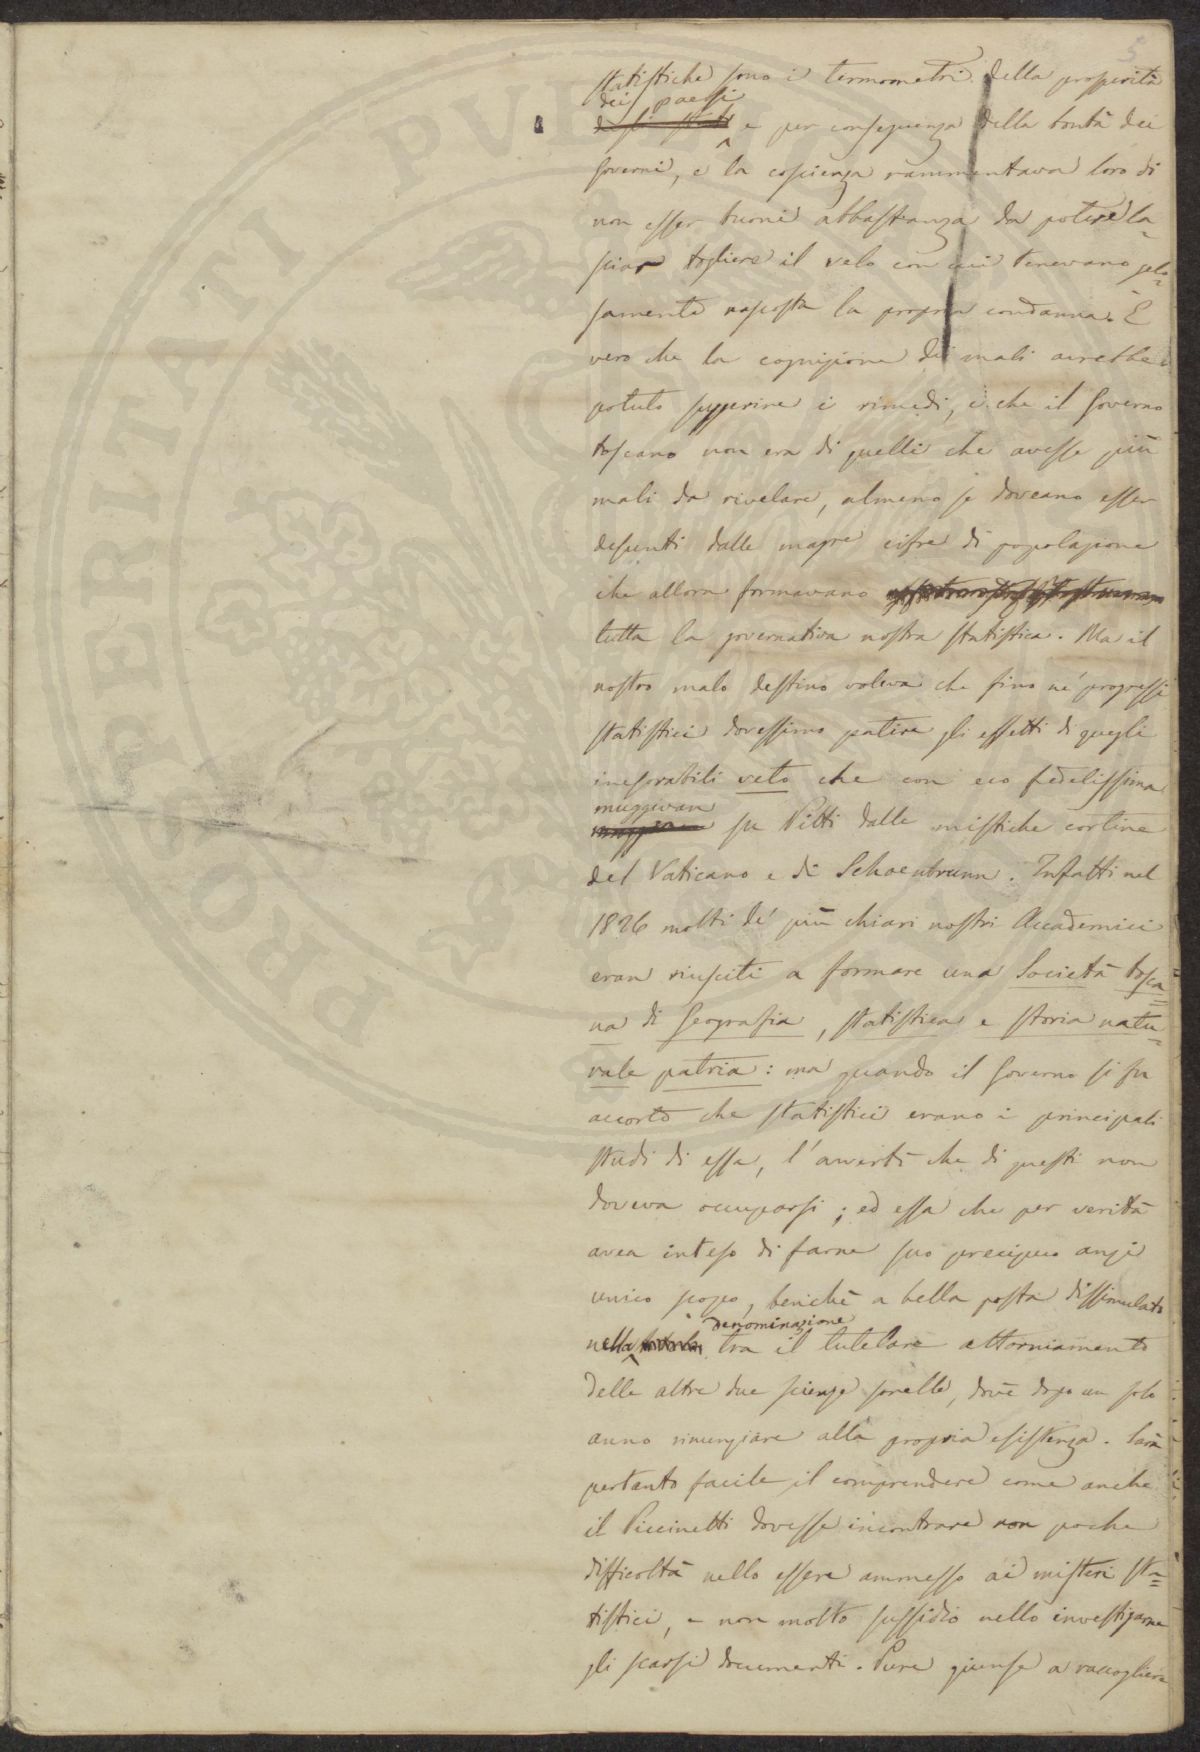 5
statistiche sono i termometri della prosperità
dei paesi
degli stati e per conseguenza della bontà dei
Governi, e la coscienza rammentava loro di
non esser buoni abbastanza da potere la-
sciar togliere il velo con cui tenevano gelo=
samente nascosta la propria condanna. È
vero che la cognizione dei mali avrebbe
potuto suggerire i rimedi, e che il Governo
toscano non era di quelli che avesse più
mali da rivelare, almeno se doveano esser
desunti dalle magre cifre di popolazione
che allora formavano
tutta la governativa nostra statistica. Ma il
nostro malo destino voleva che fino ne' progressi
statistici dovessimo patire gli effetti di quegli
inesorabili veto che con eco fedelissima
muggivan
su Pitti dalle mistiche cortine
del Vaticano e di Schoenbrunn. Infatti nel
1826 molti de' più chiari nostri Accademici
eran riusciti a formare una Società tosca=
na di Geografia, statistica e storia natu=
rale patria: ma quando il Governo si fu
accorto che statistici erano i principali
studi di essa, l'avvertì che di questi non
doveva occuparsi; ed essa che per verità
avea inteso di farne suo precipuo anzi
unico scopo, benchè a bella posta dissimulato
denominazione
nella tra il tutelare attorniamento
delle altre due scienze sorelle, dovè dopo un solo
anno rinunziare alla propria esistenza. Sarà
pertanto facile il comprendere come anche
il Piccinetti dovesse incontrare non poche
difficoltà nello essere ammesso ai misteri sta=
tistici, e non molto sussidio nello investigarne
gli scarsi documenti. Pure giunse a raccogliere
PROSPERITATI PVBLICAE